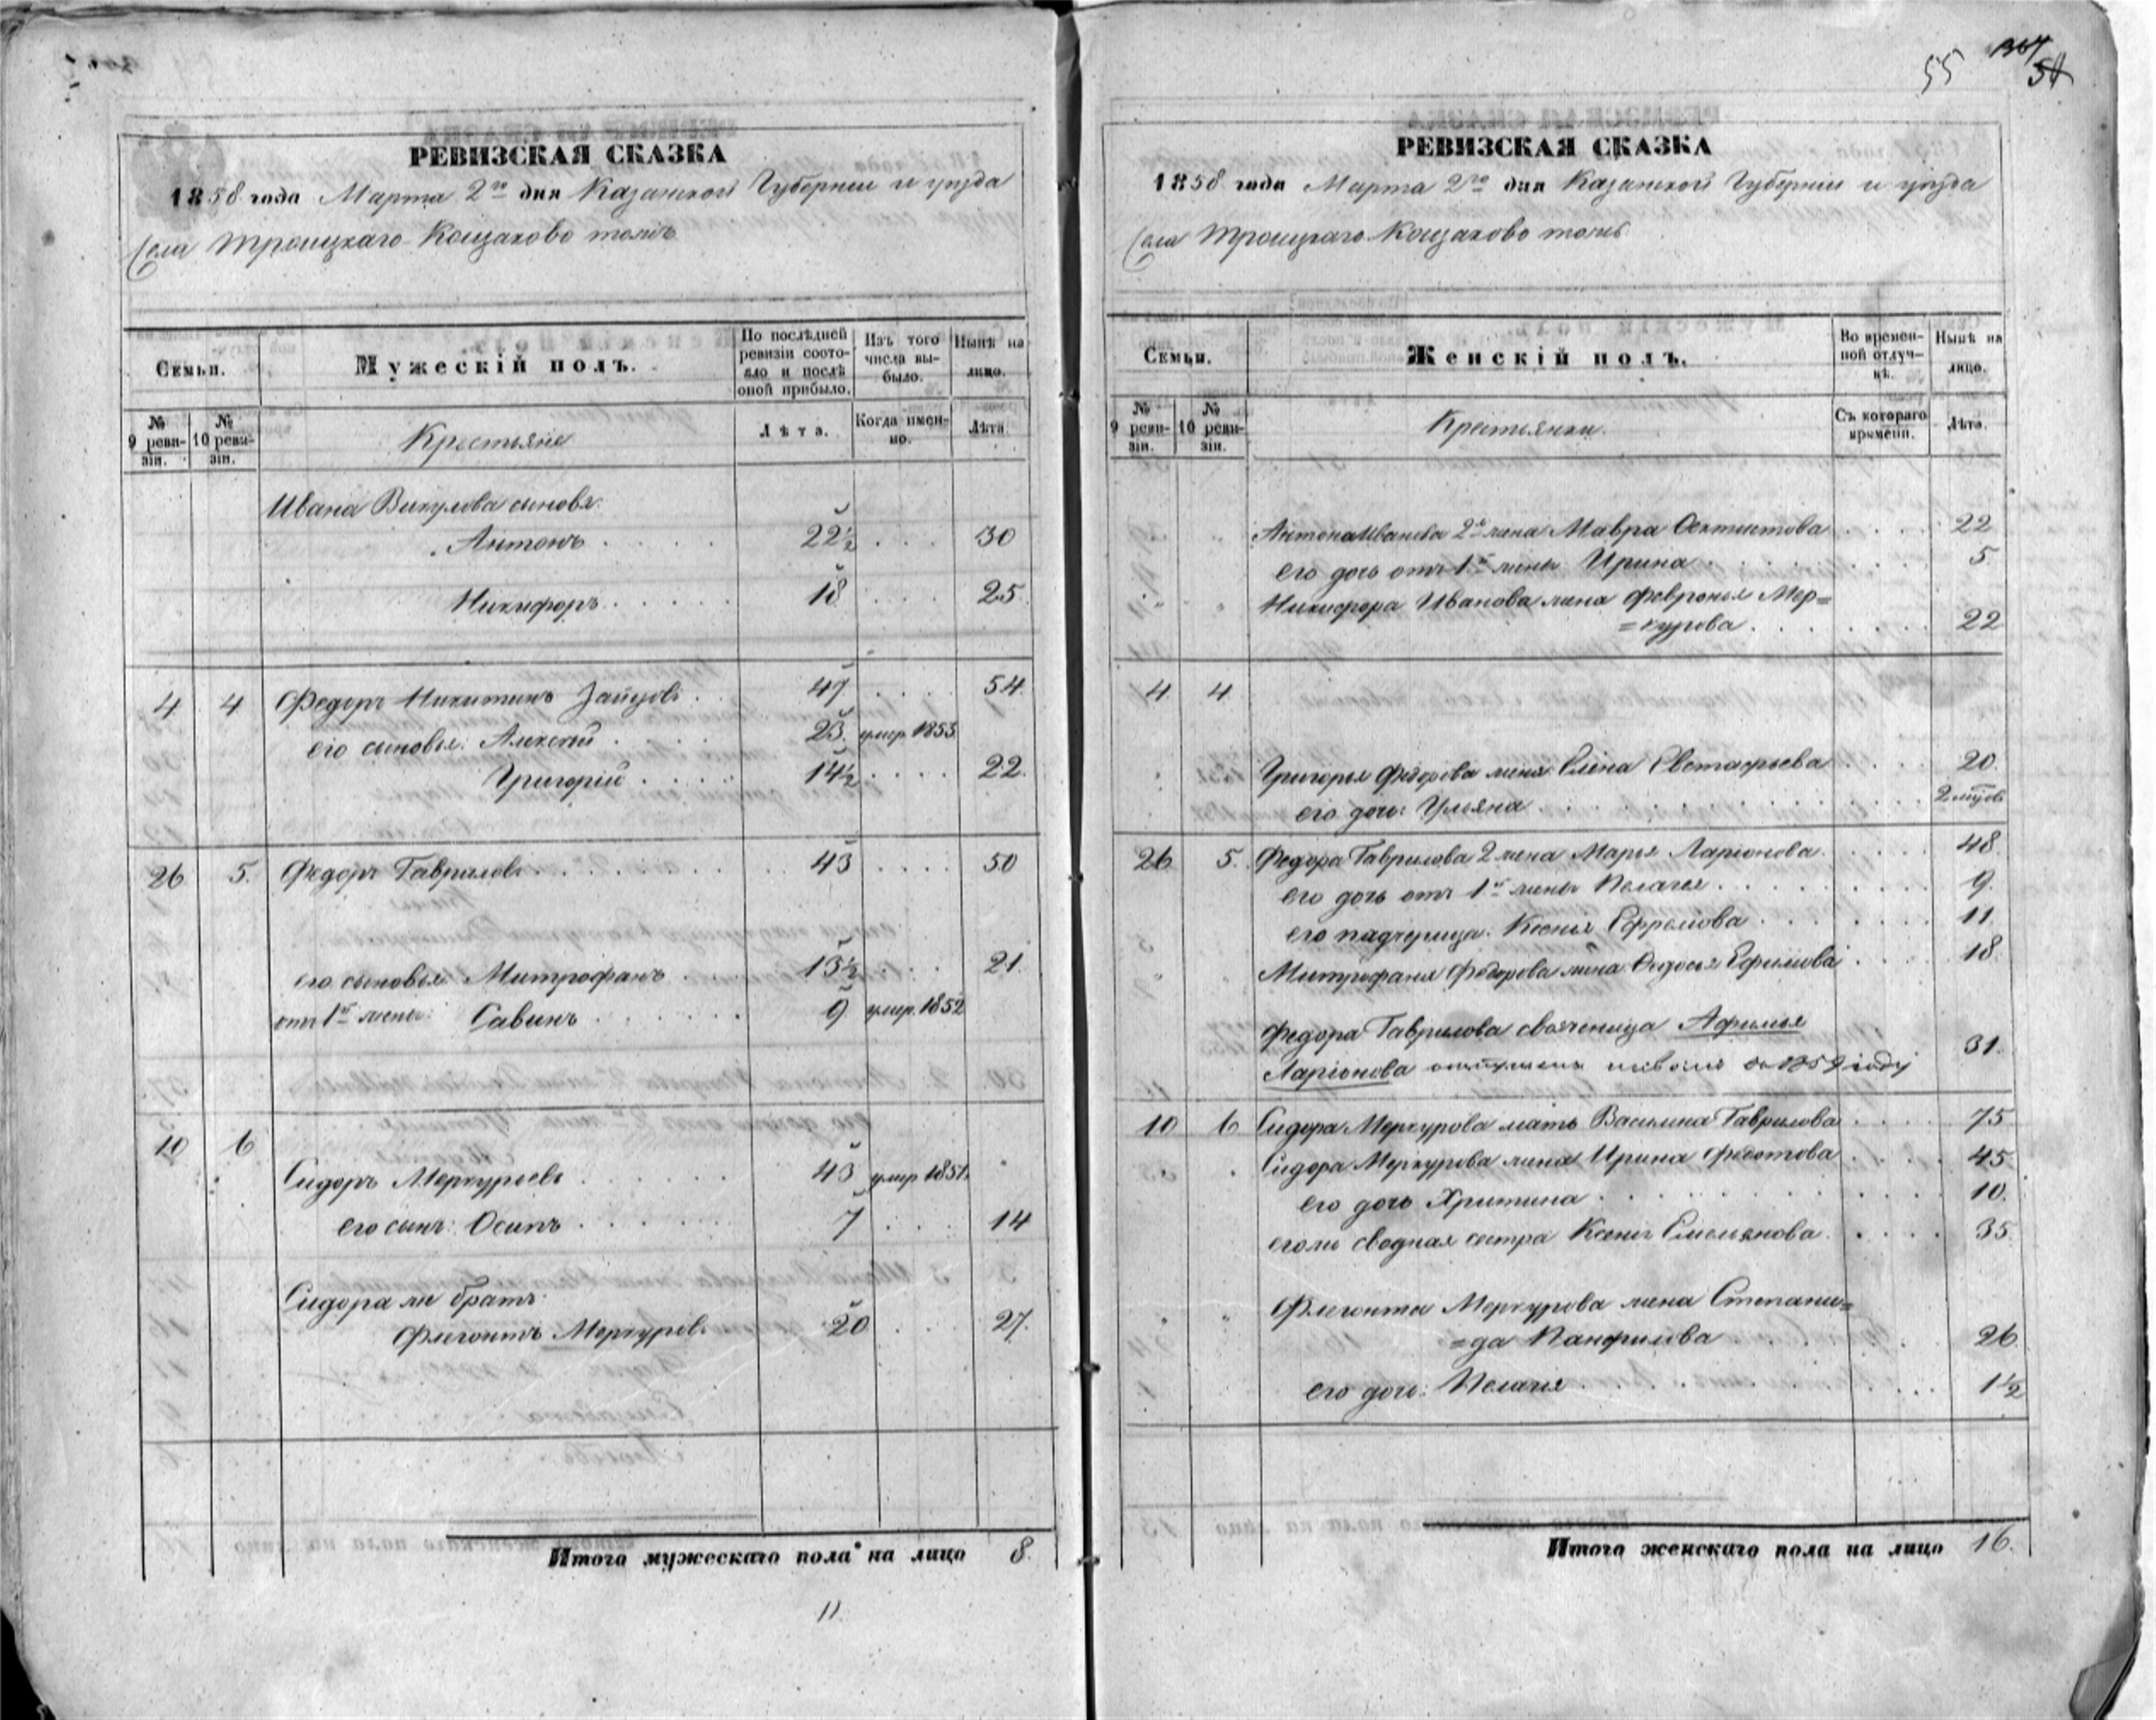 55
54
РЕВИЗСКАЯ СКАЗКА
1858 года Марта 2го дня Казанской Губернии и уезда
Села Троицкаго Кощаково тожъ
Семьи.
Мужескій полъ.
По послѣдней ревизіи состо-
яло и послѣ
оной прибыло.
Изъ того
числа вы-
было.
Нынѣ на
лицо.
№
9 реви-
зіи.
№
10 реви-
зіи.
Крестьяне
Лѣта.
Когда имен-
но.
Лѣта
Ивана Викулова сыновья
Антонъ 22½ 30
Никифоръ 18 25
4 4 Федоръ Никитинъ Зайцовъ 47 54
его сыновья: Алексѣй 23 умер. 1853
Григорій 14½ 22
26 5. Федоръ Гавриловъ 43 50
его сыновья Митрофанъ 13½ 21
отъ 1й жены: Савинъ 9 умер. 1852
10 6
Сидоръ Меркурьевъ 43 умер 1851
его сынъ: Осипъ 7 14
Сидора же братъ
Флегонтъ Меркуровъ 20 27
Итого мужескаго пола на лицо 8.
11
РЕВИЗСКАЯ СКАЗКА
1858 года Марта 2го дня Казанской Губерніи и уѣзда
Села Троицкаго Кощаково тожъ
Семьи.
Женскій полъ.
Во времен-
ной отлуч-
кѣ.
Нынѣ на
лицо.
№
9 реви-
зіи.
№
10 реви-
зіи.
Крестьянки.
Съ котораго
времени.
Лѣта.
Антона Иванова 2я жена Мавра Феоктистова 22
его дочь отъ 1й жены Ирина 5
Никифора Иванова жена Февронья Мер=
=курова 22
4 4
Григорья Федорова жена Елена Евстафьева 20
его дочь: Ульяна 2 мѣсяц.
26 5. Федора Гаврилова 2 жена Марья Ларіонова 48
его дочь отъ 1й жены Пелагея 9.
его падчерица: Ксенья Ефремова 11
Митрофана Федорова жена Федосья Ефимова 18
Федора Гаврилова свояченица Афимья
Ларіонова году 31.
10 6 Сидора Меркурова мать Василиса Гаврилова 75
Сидора Меркурова жена Ирина Федотова 45
его дочь Христина 10.
его же сводная сестра Ксенья Емельянова 35
Флегонта Меркурова жена Степани=
=да Панфилова 26
его дочь: Пелагея 1½
Итого женскаго пола на лицо 16.